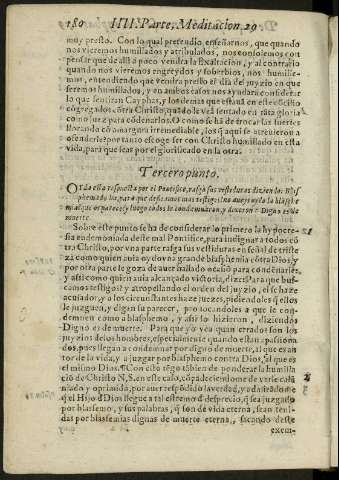 180 IIII. Parte, Meditacion. 29
muy presto. Con lo qual pretendio enseñarnos, que quando
nos vieremos humillados y atribulados, nos consolemos con
pensar que de alli a poco vendra la exaltacion, y al contrario
quando nos vieremos engreydos y soberbios, nos humille-
mos, entendiendo que vendra presto el dia del juyzio en que
seremos humillados, y en ambos casos nos ayudará considerar
lo que sentiran Cayphas, y los demas que estauã en este cõcilio
cõgregados cõtra Christo, quãdo le veã sentado en tãta gloria
como juez para cõdenarlos. O como se ha de trocar las suertes
llorando cõ amargura irremediable, los q̃ aqui se atreuieron a
ofenderte: por tanto escoge ser con Christo humillado en esta
vida, para que seas por el glorificado en la otra.
Tercero punto.
Oyda esta respuesta por el Pontifice, rasgò sus vestiduras diziendo: Blas
phemado ha, para que desseamos mas testigos? no aueys oydo la blasphe
mia? que os parece? y luego todos le condemnaron, y dixeron: Digno es de
muerte.
Sobre este punto se ha de considerar lo primero la hypocre-
sia endemoniada deste mal Pontifice, para indignar a todos cõ
tra Christo, por vna parte rasga sus vestiduras en señal de triste
za como quien auia oydo vna grande blasphemia cõtra Dios, y
por otra parte se goza de auer hallado ocasiõ para condenarle,
y assi como quien auia alcançado victoria, dize: Para que bus-
camos testigos? y atropellando el orden del juyzio, el se haze
acusador, y a los circunstantes haze juezes, pidiendoles q̃ ellos
le juzguen, y digan su parecer, prouocandoles a que le con-
demnen como a blasphemo, y assi lo hizieron, diziendo:
Digno es de muerte. Para que yo vea quan errados son los
juyzios de los hombres, especialmente quando estan apassiona
dos, pues llegan a condemnar por digno de muerte, al que es au
tor de la vida, y a juzgar por blasphemo contra Dios, al que es
el mismo Dios. ¶ Con esto tẽgo tãbien de ponderar la humilla
ciõ de Christo N. S. en este caso, cõpadeciendome de verle calũ
niado y oprimido, por auer respõdido la verdad, y admirãdome
q̃ el Hijo d̃ Dios llegue a tal estremo d̃ desprecio, q̃ sea juzgado
por blasfemo, y sus palabras, q̃ son de vida eterna, sean teni-
das por blasfemias dignas de muerte eterna, sacando deste
exem-